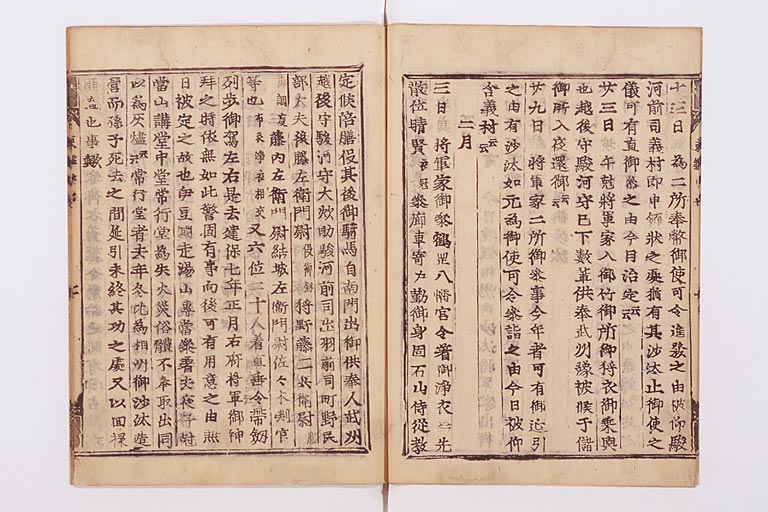 十三日為二所奉幣御使可令進發之由被仰駿
河前司義村即申領状之處猶有其沙汰止御使之
儀可有直御參之由今日治定云云
廿三日午尅將軍家入御竹御所御狩衣御乘輿
也越後守駿河守已下數輩供奉武州豫被候于儲
御所入夜還御云云
廿九日將軍家二所御參事今年者可有御延引
之由有沙汰如元為御使可令參詣之由今日被仰
含義村云云
二月
三日將軍家御參鶴岡八幡宮令著御淨衣給先
散位晴賢衣冠參廊車寄方勤御身固石山侍從教
定候陪膳役其後御騎馬自南門出御供奉人武州
越後守駿河守大炊助駿河前司出羽前司町野民
部大夫後藤左衛門尉狩野藤二兵衛尉
藤内左衛門尉結城左衛門尉佐々木判官
等也布衣淨衣相交又六位二十人着直垂令帶釼
列歩御駕左右是去建保七年正月右府將軍御神
拜之時依無如此警固有事而後可有用意之由無
日被定之故也伊豆國走湯山專當參著去夜子尅
當山講堂中堂常行堂為失火災俗體不奉取出同
以為灰燼云云常行堂者去年冬比為相州御沙汰造
營而孫子死去之間延引未終其功之處又以回祿
匪直也事歟